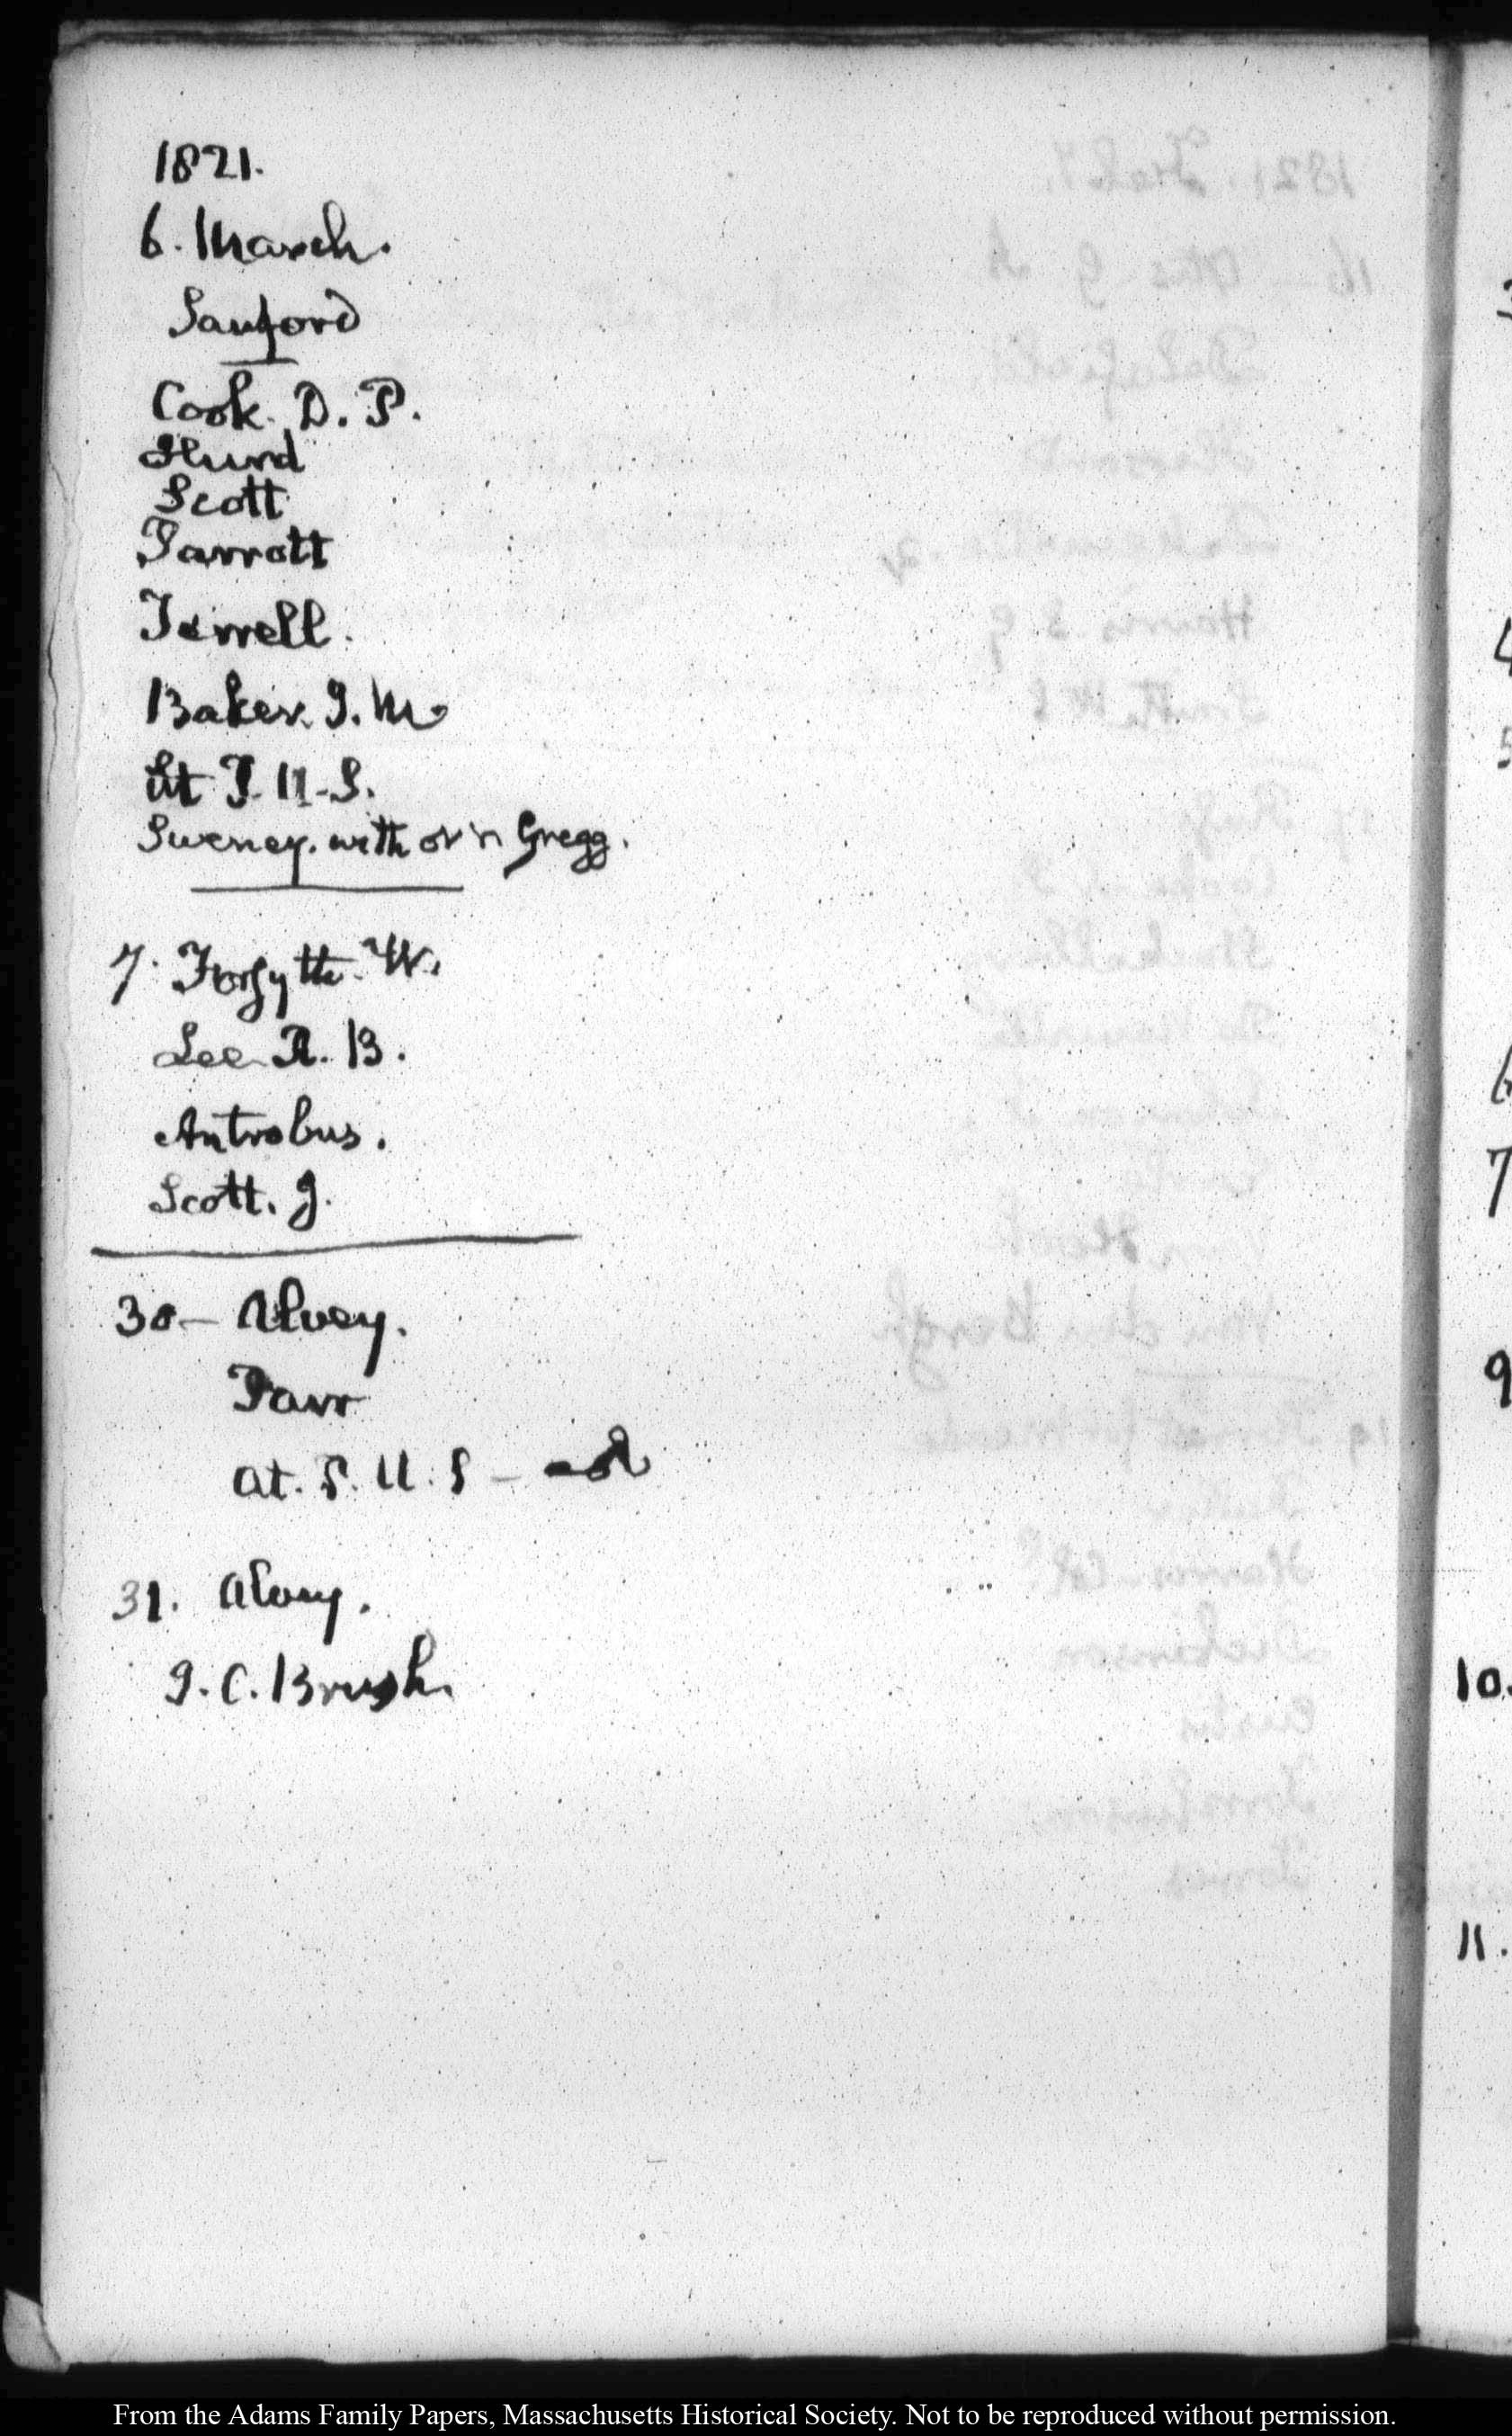 1821.
6. March.
Sanford
Cook. D. P.
Hurd
Scott
Parrott
Terrell.
Baker. J. M.
at P. U. S.
Sweney. with or n Gregg.
7. Forsyth. W.
Lee R. B.
Antrobus.
Scott. J.
30 — Alvey.
Parr
at. P. U. S —
31. Alvey.
J. C. Brush.
3
4
5
6
7
9
10.
11.
From the Adams Family Papers, Massachusetts Historical Society. Not to be reproduced without permission.